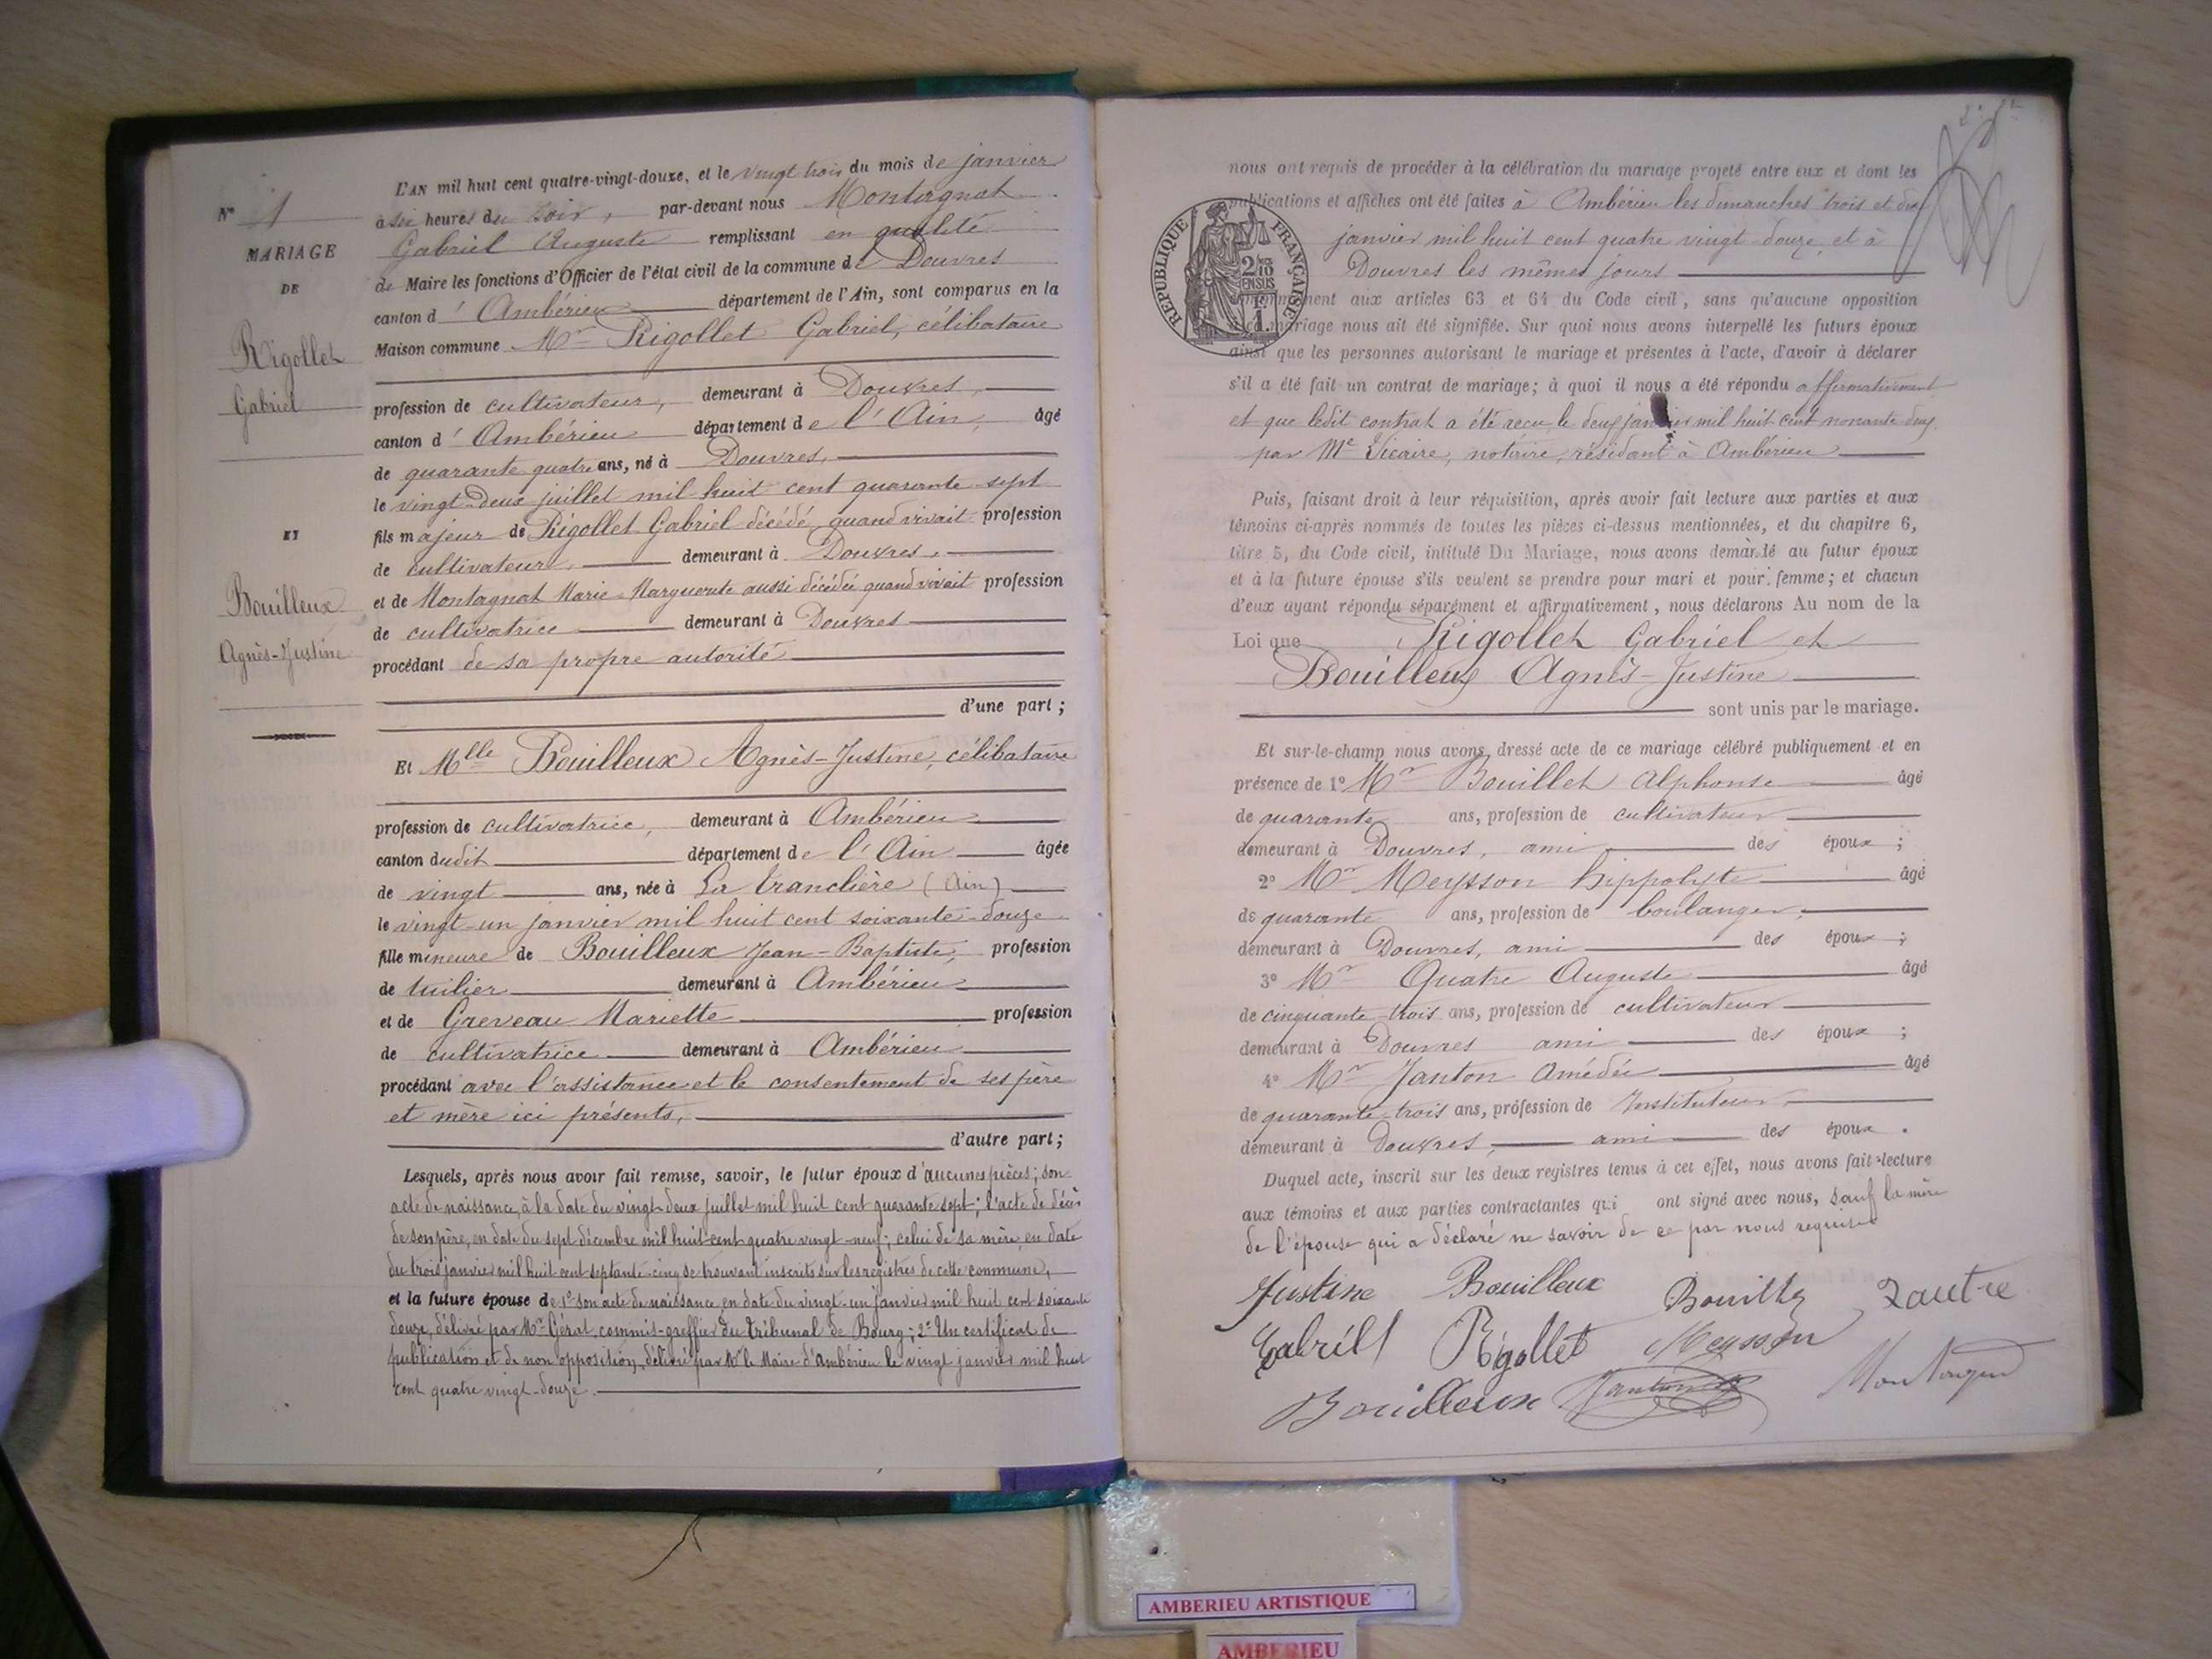 L'AN mil huit cent quatre-vingt-douze, et le vingt trois du mois de janvier
à six heures du soir, par-devant nous Montagnat
Gabriel Auguste remplissant en qualité
de Maire les fonctions d'Officier de l'état civil de la commune de Douvres
canton d'Ambérieu département de l'Ain, sont comparus en la
Maison commune Mr Rigollet Gabriel, célibataire
profession de cultivateur, demeurant à Douvres,
canton d'Ambérieu département de l'Ain, âgé
de quarante quatre ans, né à Douvres,
le vingt-deux juillet mil huit cent quarante-sept
fils majeur de Rigollet Gabriel décédé, quand vivait profession
de cultivateur demeurant à Douvres,
et de Montagnat Marie-Marguerite aussi décédée quand vivait profession
de cultivatrice demeurant à Douvres
procédant de sa propre autorité
d'une part ;
Et Mlle Bouilleux Agnès-Justine, célibataire
profession de cultivatrice, demeurant à Ambérieu
canton dudit département de l'Ain âgée
de vingt ans, née à La tranclière (Ain)
le vingt-un janvier mil huit cent soixante-douze
fille mineure de Bouilleux Jean-Baptiste, profession
de tuilier demeurant à Ambérieu
et de Greveau Mariette profession
de cultivatrice demeurant à Ambérieu
procédant avec l'assistance et le consentement de ses père
et mère ici présents,
d'autre part ;
Lesquels, après nous avoir fait remise, savoir, le futur époux d'aucunes pièces ; son
acte de naissance, à la date du vingt-deux juillet mil huit cent quarante sept ; l'acte de décès
de son père, en date du sept décembre mil huit cent quatre vingt-neuf ; celui de sa mère, en date
du trois janvier mil huit cent septante-cinq se trouvant inscrits sur les registres de cette commune,
et la future épouse de 1° son acte de naissance, en date du vingt-un janvier mil huit cent soixante
douze, délivré par Mr Gérat, commis-greffier du tribunal de Bourg ; 2° Un certificat de
publication et de non opposition, délivré par Mr le Maire d'Ambérieu le vingt janvier mil huit
cent quatre vingt-douze.
N° 1
MARIAGE
DE
Rigollet
Gabriel
ET
Bouilleux
Agnès-Justine
nous ont requis de procéder à la célébration du mariage projeté entre eux et dont les
publications et affiches ont été faites à Ambérieu les dimanches trois et dix
janvier mil huit cent quatre vingt-douze et à
Douvres les mêmes jours
conformément aux articles 63 et 64 du Code civil, sans qu'aucune opposition
à ce mariage nous ait été signifiée. Sur quoi nous avons interpellé les futurs époux
ainsi que les personnes autorisant le mariage et présentes à l'acte, d'avoir à déclarer
s'il a été fait un contrat de mariage ; à quoi il nous a été répondu affirmativement
et que ledit contrat a été reçu le deux janvier mil huit cent nonante deux
par Me Vicaire, notaire, résidant à Ambérieu
Puis, faisant droit à leur réquisition, après avoir fait lecture aux parties et aux
témoins ci-après nommés de toutes les pièces ci-dessus mentionnées, et du chapitre 6,
titre 5, du Code civil, intitulé Du Mariage, nous avons demandé au futur époux
et à la future épouse s'ils veulent se prendre pour mari et pour femme ; et chacun
d'eux ayant répondu séparément et affirmativement, nous déclarons Au nom de la
Loi que Rigollet Gabriel et
Bouilleux Agnès-Justine
sont unis par le mariage.
Et sur-le-champ nous avons dressé acte de ce mariage célébré publiquement et en
présence de 1° Mr Bouillet Alphonse âgé
de quarante ans, profession de cultivateur
demeurant à Douvres, ami des époux ;
2° Mr Meysson hippolyte âgé
de quarante ans, profession de boulanger,
demeurant à Douvres, ami des époux ;
3° Mr Quatre Auguste âgé
de cinquante-trois ans, profession de cultivateur
demeurant à Douvres ami des époux ;
4° Mr Janton Amédée âgé
de quarante-trois ans, profession de Instituteur,
demeurant à Douvres, ami des époux.
Duquel acte, inscrit sur les deux registres tenus à cet effet, nous avons fait lecture
aux témoins et aux parties contractantes qui ont signé avec nous, sauf la mère
de l'épouse qui a déclaré ne savoir de ce par nous requise
Justine Bouilleux Bouillet
Gabriéll Rigollet Meysson
Bouilleux Janton Montagnat
RÉPUBLIQUE FRANÇAISE
2/10 EN SUS
AMBERIEU ARTISTIQUE
AMBERIEU